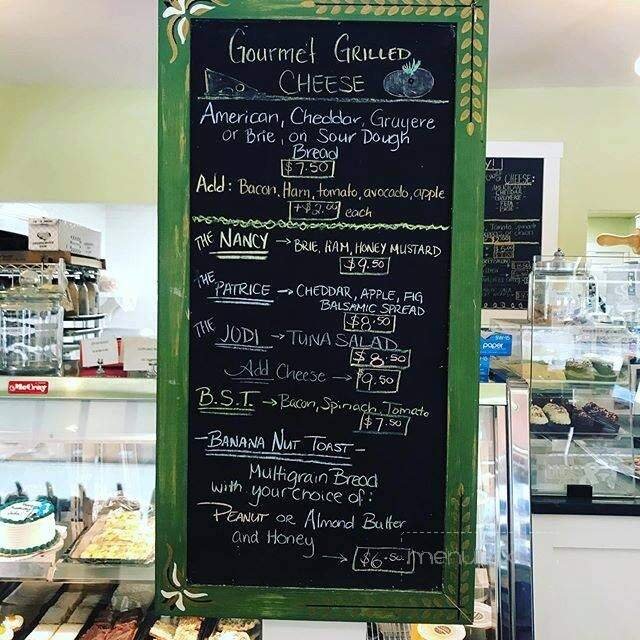 Gourmet GRILLED
CHEESE
American, Cheddar, Gruyere
or Brie, on Sour Dough
Bread
$7.50
Add: Bacon, Ham, tomato, avocado, apple
+$2.00 each
THE NANCY → BRIE, HAM, HONEY MUSTARD
$9.50
THE PATRICE → CHEDDAR, APPLE, FIG
BALSAMIC SPREAD
$8.50
THE JODI → TUNA SALAD
$8.50
Add Cheese → $9.50
B.S.T. → Bacon, Spinach, Tomato
$7.50
- BANANA NUT TOAST -
Multigrain Bread
with your choice of:
PEANUT or Almond Butter
and Honey
→ $6.50
CHEESE:
AMERICAN
CHEDDAR
GRUYERE
BRIE
McCray
paper
menu